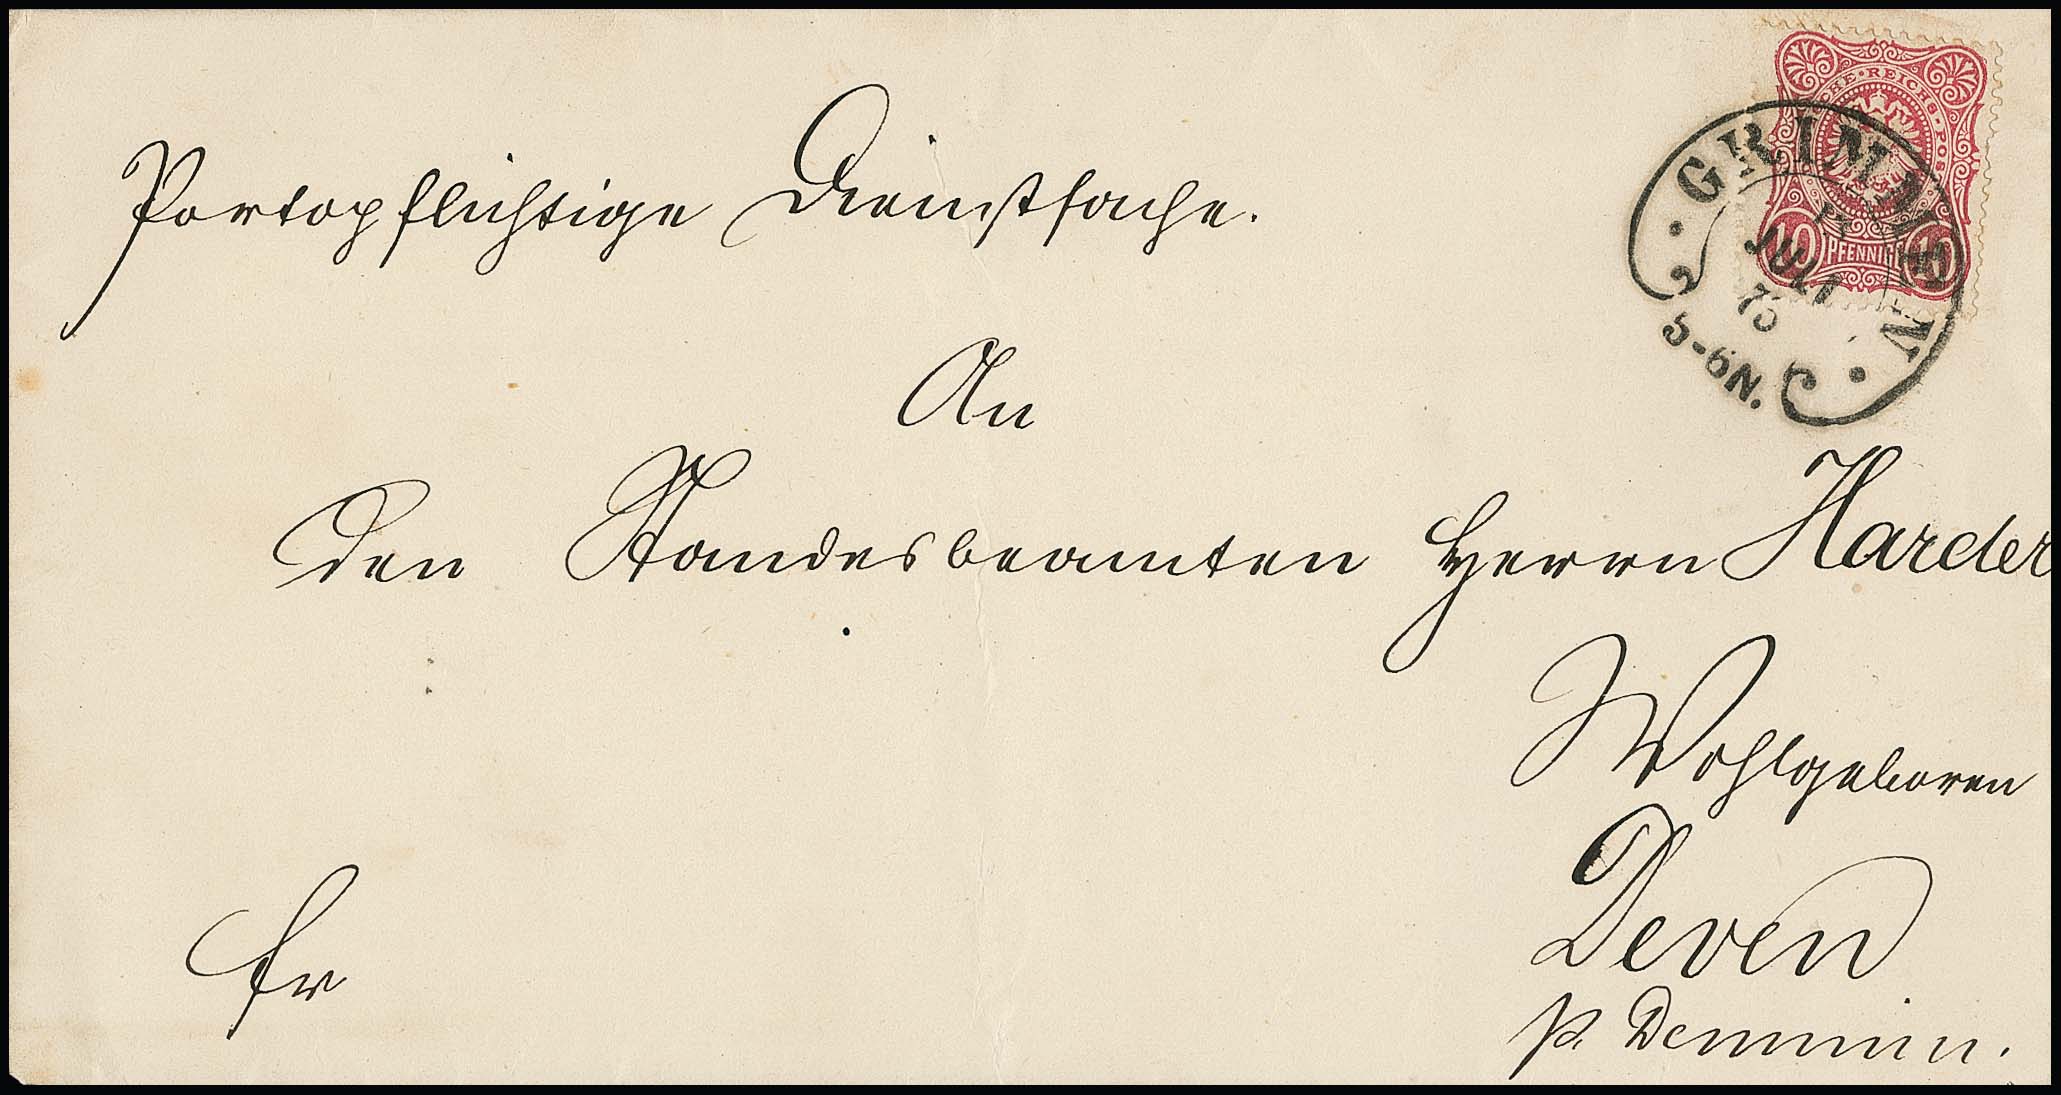 REICHS-POST
10 PFENNIG 10
GRIMMEN
JULI
75
5-6N.
Portopflichtige Dienstsache.
An
den Standesbeamten Herrn Harder
Wohlgeboren
Deven
p. Demmin.
fr